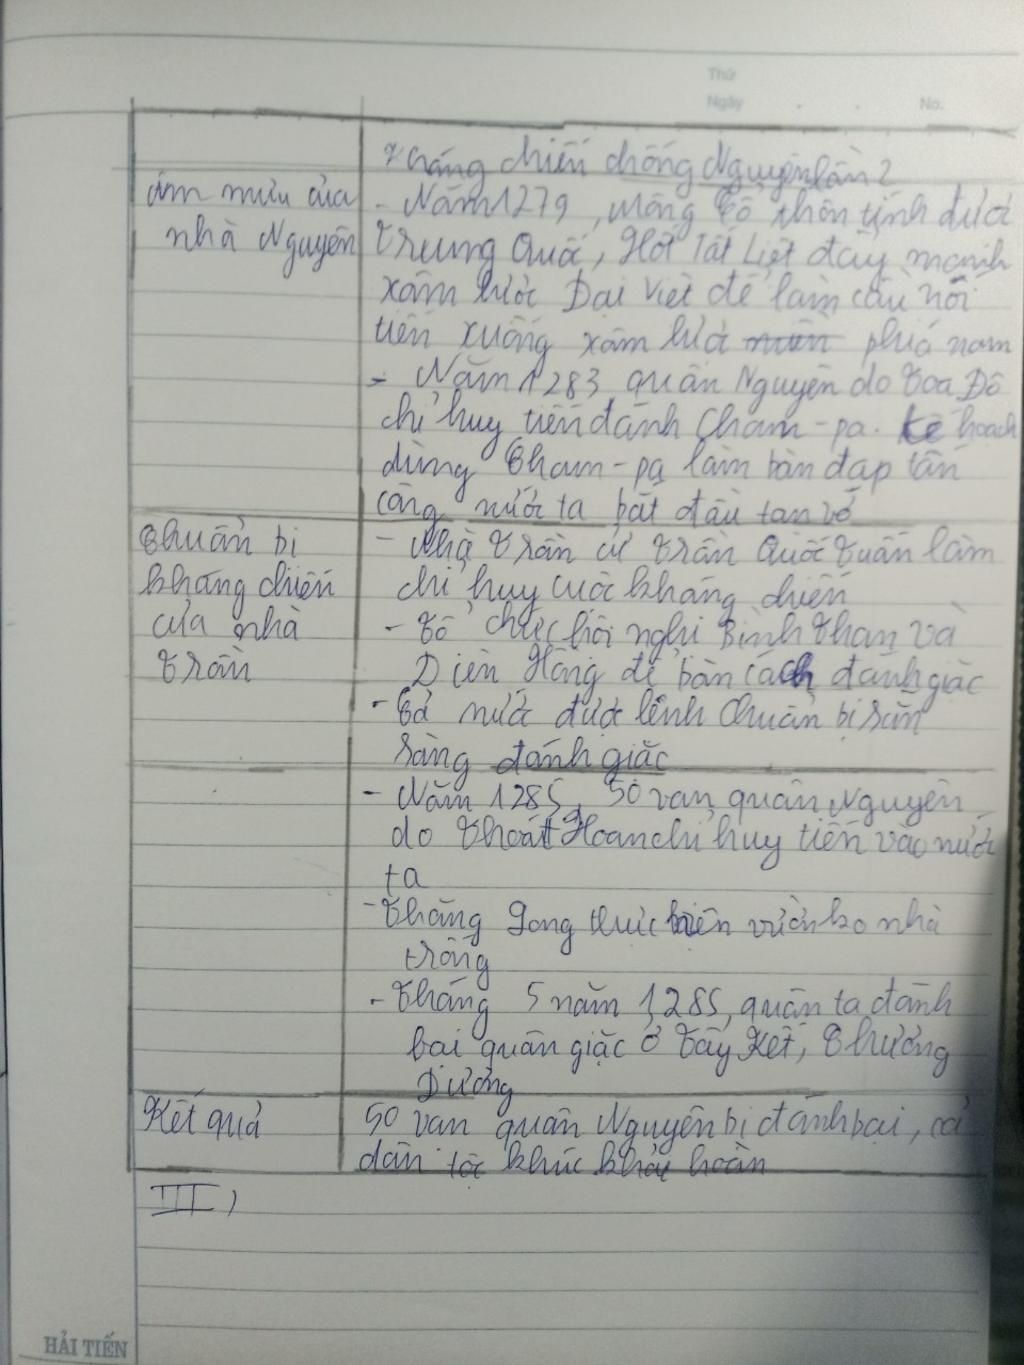 Thứ
Ngày . . No.
Kháng chiến chống Nguyên lần 2
Âm mưu của
nhà Nguyên
- Năm 1279, Mông Cổ thôn tính được
Trung Quốc, Hốt Tất Liệt đẩy mạnh
xâm lược Đại Việt để làm cầu nối
tiến xuống xâm lược miền phía nam
- Năm 1283 quân Nguyên do Toa Đô
chỉ huy tiến đánh Cham-pa. Kế hoạch
dùng Cham-pa làm bàn đạp tấn
công nước ta bắt đầu tan vỡ
Chuẩn bị
kháng chiến
của nhà
Trần
- Nhà Trần cử Trần Quốc Tuấn làm
chỉ huy cuộc kháng chiến
- Tổ chức hội nghị Bình Than và
Diên Hồng để bàn cách đánh giặc
- Cả nước được lệnh chuẩn bị sẵn
sàng đánh giặc
- Năm 1285, 50 vạn quân Nguyên
do Thoát Hoan chỉ huy tiến vào nước
ta
- Thăng Long thực hiện vườn ko nhà
trống
- Tháng 5 năm 1285, quân ta đánh
bại quân giặc ở Tây Kết, Chương
Dương
Kết quả
50 vạn quân Nguyên bị đánh bại, cả
dân tộc khúc khải hoàn
III,
HẢI TIẾN